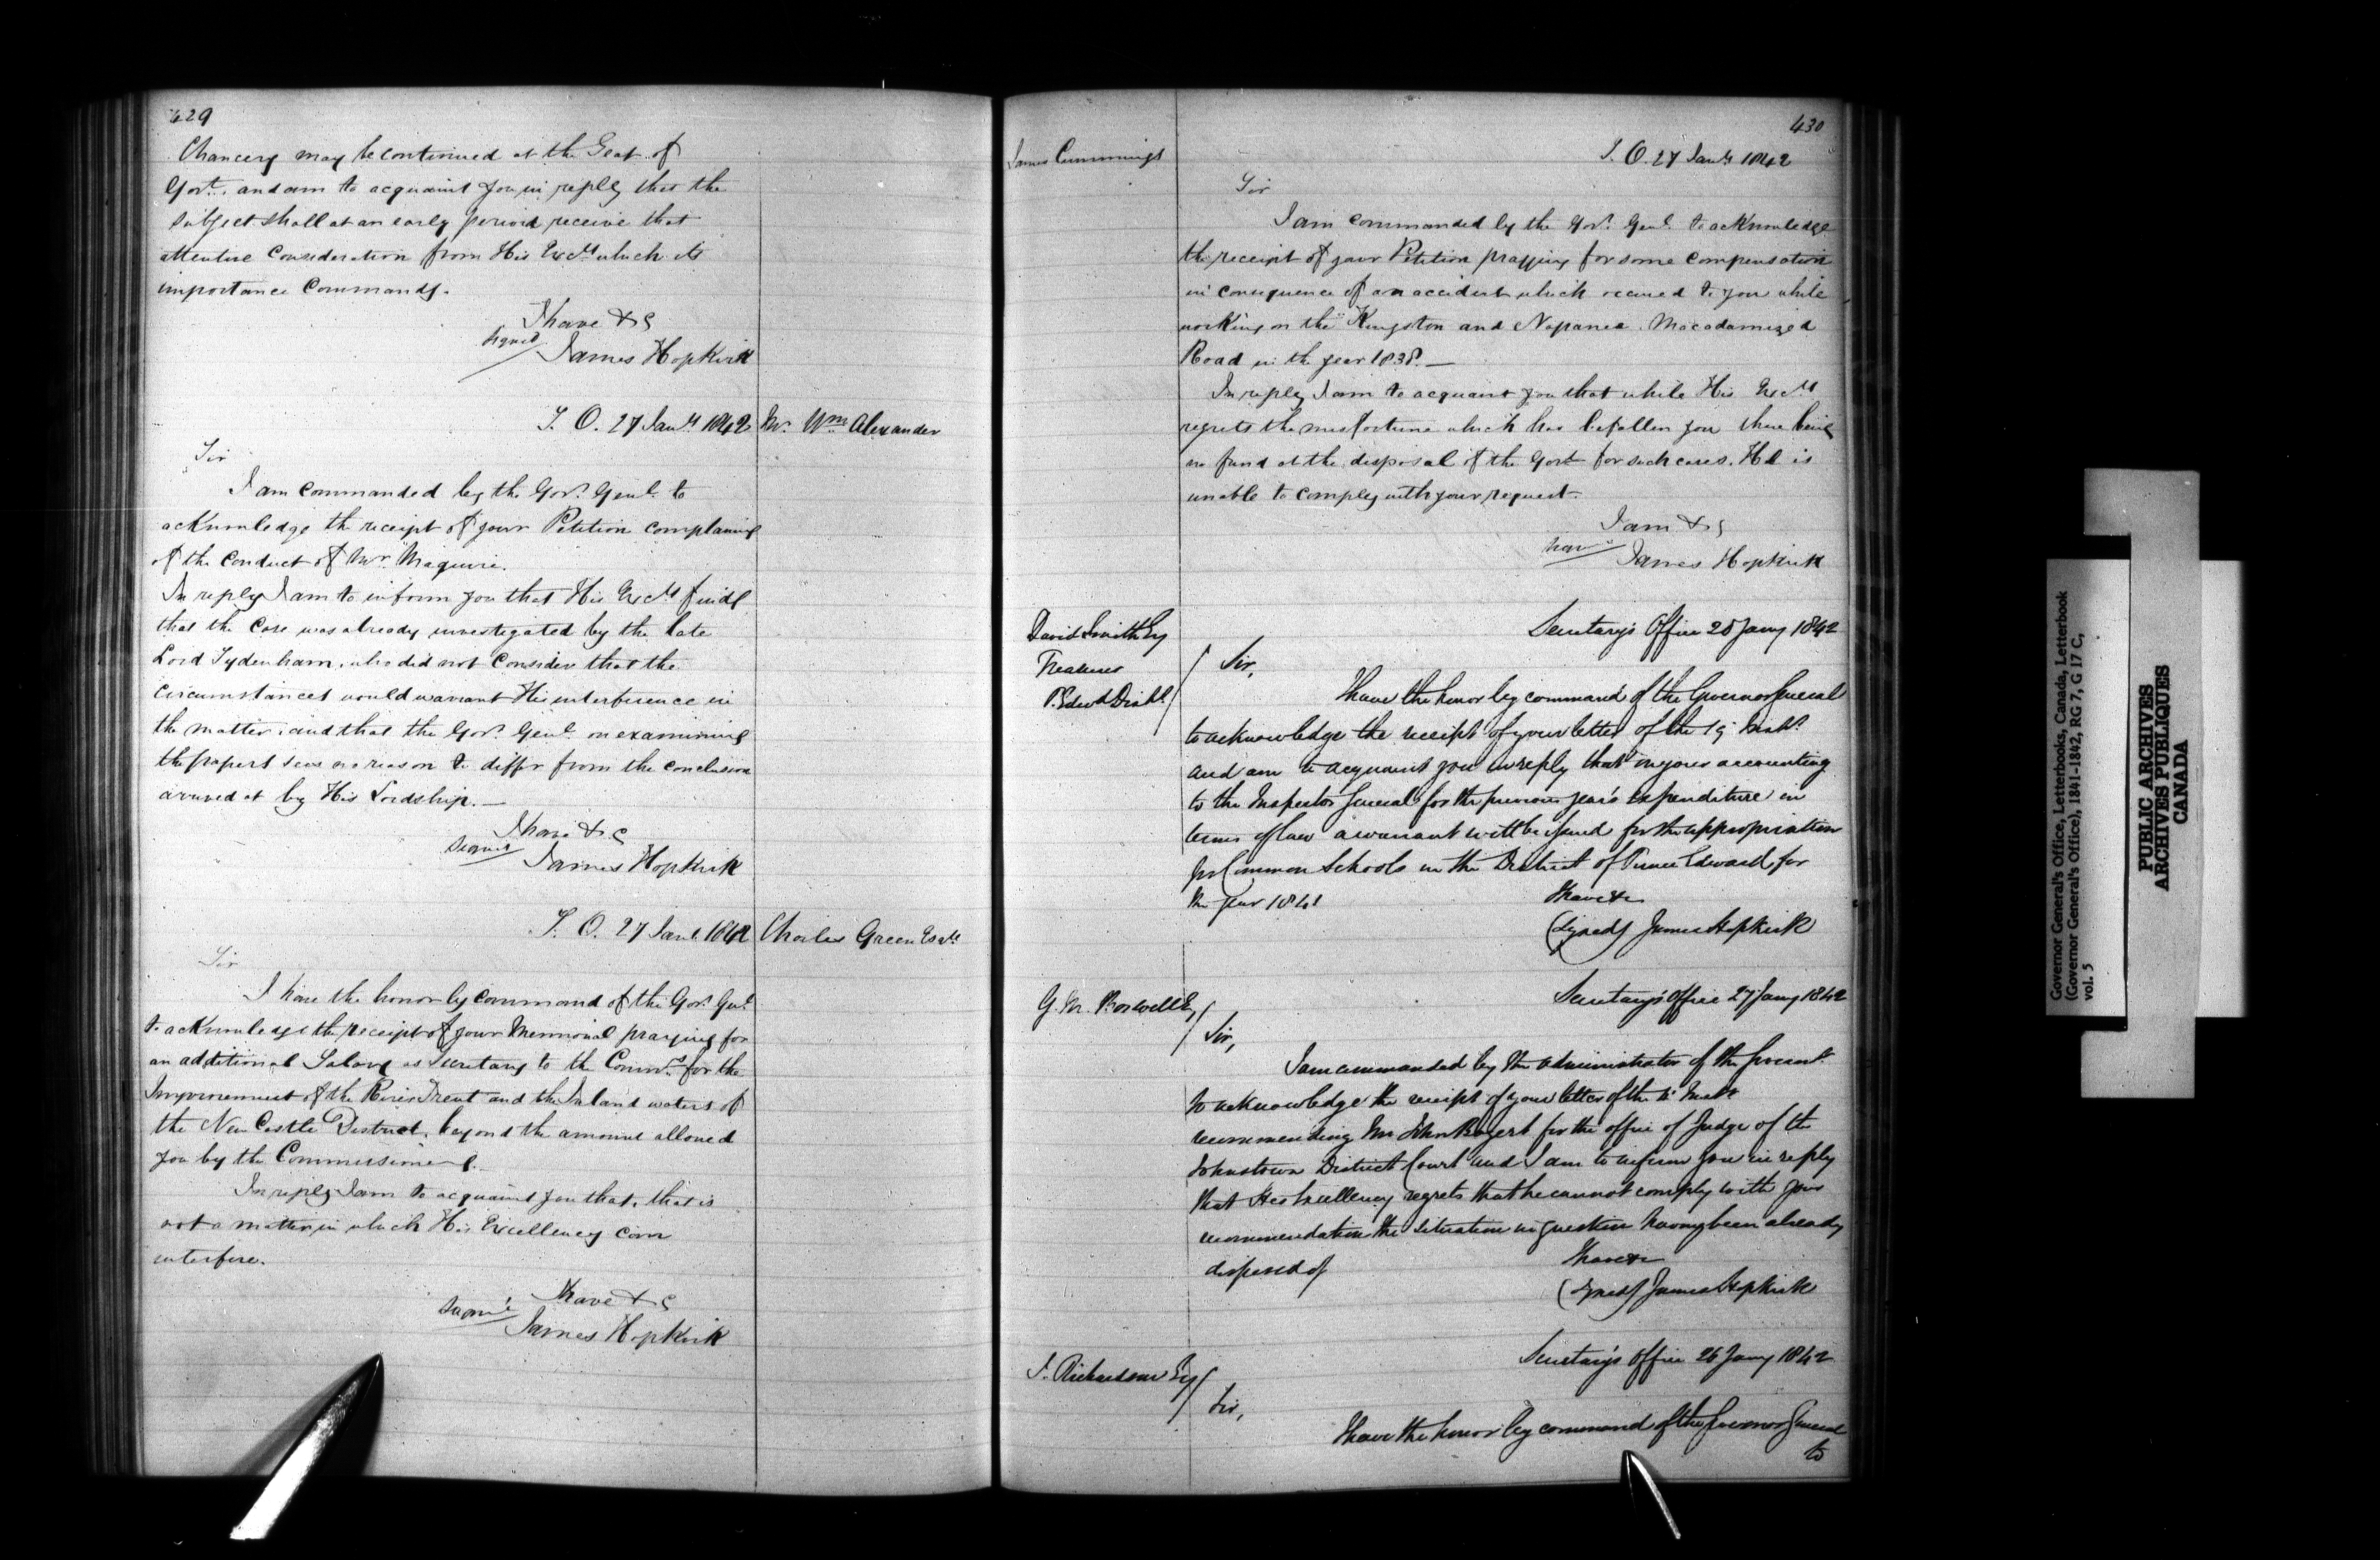 429
Chancery may be continued at the Seat of
Govt. and am to acquaint you in reply that the
subject shall at an early period receive that
attentive Consideration from His Excy which its
importance Commands.
I have &c
signed
James Hopkirk
S. O. 27 Jany 1842
Mr. Wm Alexander
Sir
I am commanded by the Govr. Genl. to
acknowledge the receipt of your Petition complaining
of the conduct of Mr Maguire.
In reply I am to inform you that His Excy finds
that the Case was already investigated by the late
Lord Sydenham, who did not Consider that the
circumstances would warrant His interference in
the matter, and that the Govr. Genl. on examining
the papers sees no reason to differ from the conclusion
arrived at by His Lordship.—
I have &c
Signed
James Hopkirk
S. O. 27 Jany 1842
Charles Green Esqr.
Sir
I have the honor by Command of the Govr. Genl.
to acknowledge the receipt of your Memorial praying for
an additional Salary as Secretary to the Commrs for the
Improvement of the River Trent and the Inland waters of
the New Castle District, beyond the amount allowed
you by the Commissioners.
In reply I am to acquaint you that, that is
not a matter in which His Excellency can
interfere.
I have &c
Signed
James Hopkirk
430
James Cummings
S. O. 27 Jany 1842
Sir
I am commanded by the Govr. Genl. to acknowledge
the receipt of your Petition praying for some Compensation
in consequence of an accident which occured to you while
working on the Kingston and Napanea Macadamized
Road in the year 1838.—
In reply I am to acquaint you that while His Excy
regrets the misfortune which has befallen you there being
no fund at the disposal of the Govt for such cases. He is
unable to comply with your request.
I am &c
James Hopkirk
David Smith Esq
Treasurer
P. Edwd Distt.
Secretary's Office 28 Jany 1842
Sir,
I have the honor by command of the Governor General
to acknowledge the receipt of your letter of the 19 Inst.
and am to acquaint you in reply that in your accounting
to the Inspector General for the previous year's expenditure in
terms of law a warrant will be issued for the appropriation
for Common Schools in the District of Prince Edward for
the year 1841
I have &c
(Signed) James Hopkirk
G. M. Boswell Esq
Secretary's Office 27 Jany 1842
Sir,
I am commanded by the Administrator of the Governmt.
to acknowledge the receipt of your letter of the Inst
recommending Mr John Bogert for the office of Judge of the
Johnstown District Court and I am to inform you in reply
that His Excellency regrets that he cannot comply with your
recommendation the situation in question having been already
disposed of
I have &c
(Signed) James Hopkirk
J. Richardson Esq
Secretary's Office 26 Jany 1842
Sir,
I have the honor by command of the Governor General
to
Governor General's Office, Letterbooks, Canada, Letterbook
(Governor General's Office), 1841-1842, RG 7, G 17 C,
vol. 5
PUBLIC ARCHIVES
ARCHIVES PUBLIQUES
CANADA